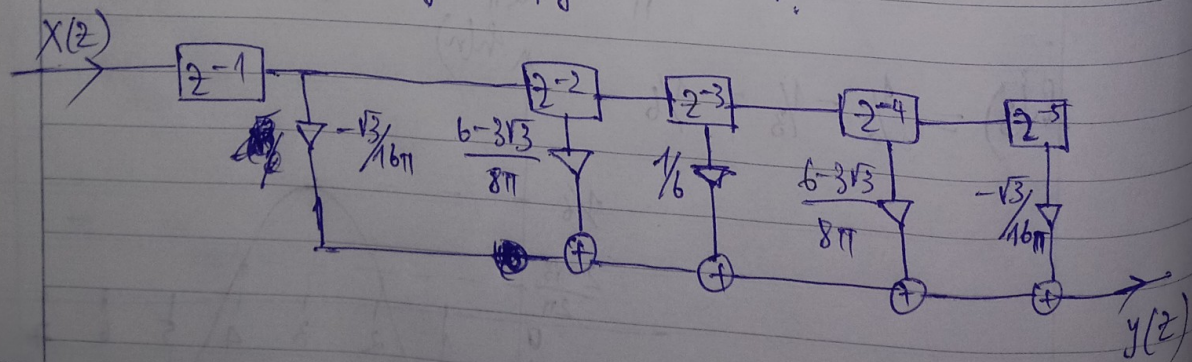 X(z)
z⁻¹
z⁻²
z⁻³
z⁻⁴
z⁻⁵
-√3/16π
6-3√3/8π
1/6
6-3√3/8π
-√3/16π
+
+
+
+
y(z)